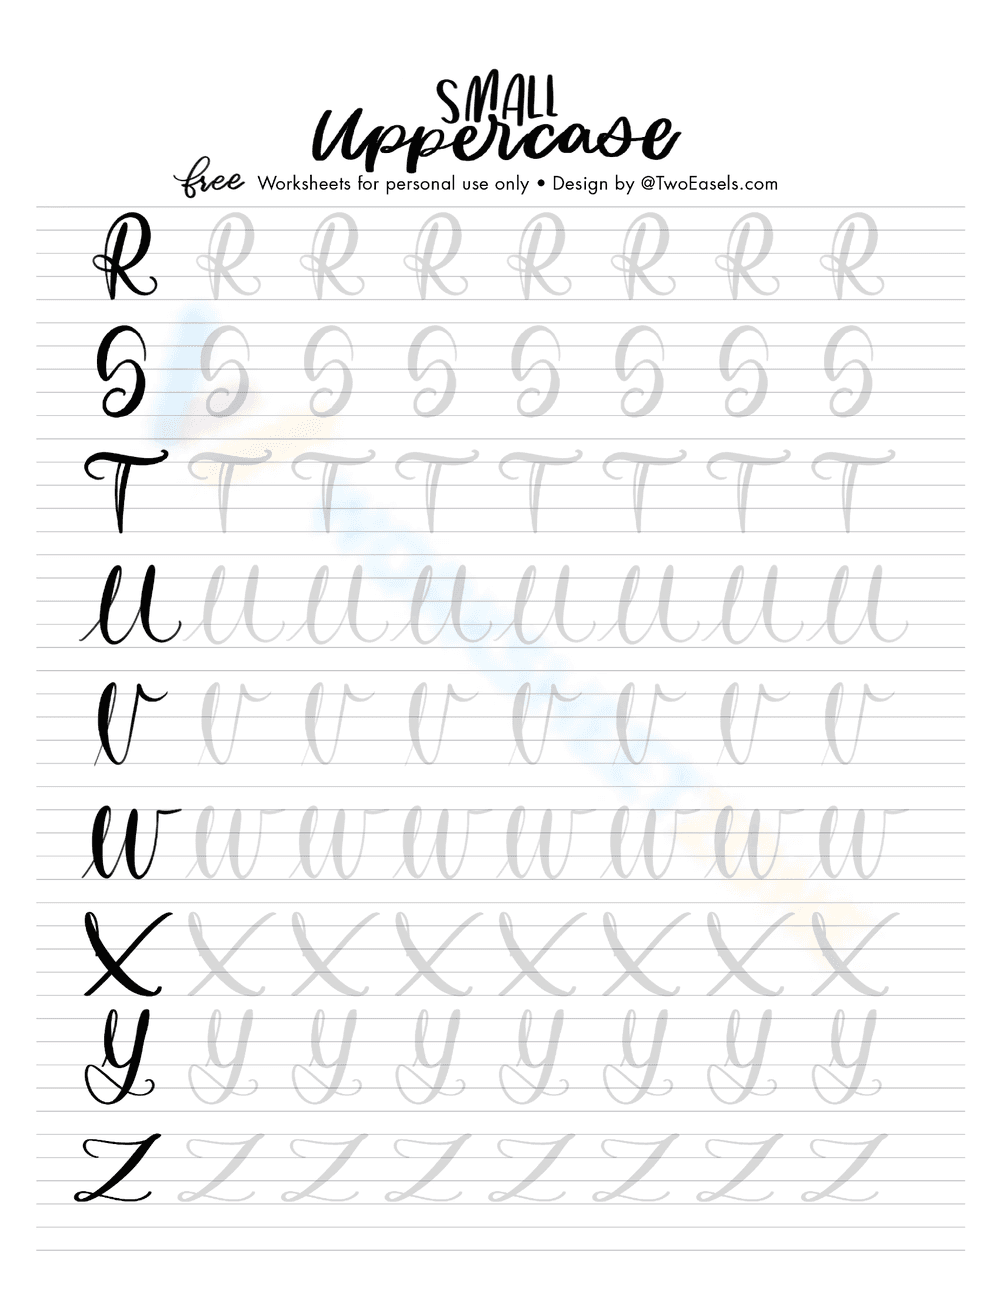 SMALL
Uppercase
free Worksheets for personal use only • Design by @TwoEasels.com
R R R R R R R R
S S S S S S S S
T T T T T T T T
U U U U U U U U
V V V V V V V V
W W W W W W W W
X X X X X X X X
Y Y Y Y Y Y Y Y
Z Z Z Z Z Z Z Z